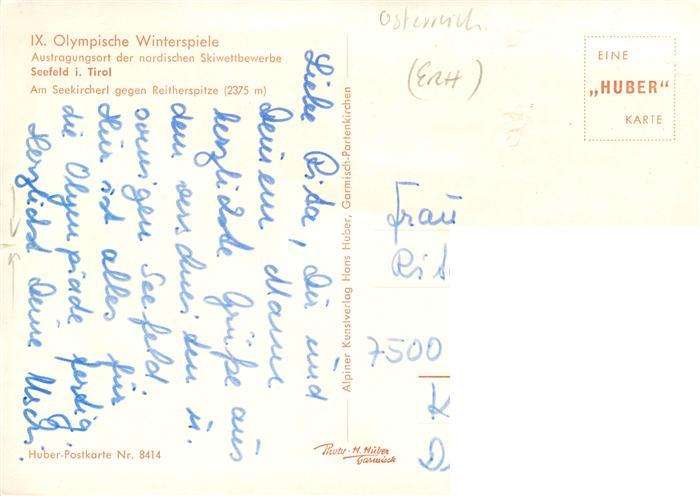 IX. Olympische Winterspiele
Austragungsort der nordischen Skiwettbewerbe
Seefeld i. Tirol
Am Seekircherl gegen Reitherspitze (2375 m)
Liebe Rita, Dir und
Deinem Mann
herzlichste Grüße aus
dem verschneiten u.
sonnigen Seefeld.
Hier ist alles für
die Olympiade fertig
Herzlichst Deine Uschi.
Huber-Postkarte Nr. 8414
Alpiner Kunstverlag Hans Huber, Garmisch-Partenkirchen
Photo-H. Huber
Garmisch
Österreich
(ERH)
EINE
„HUBER"
KARTE
Frau
7500